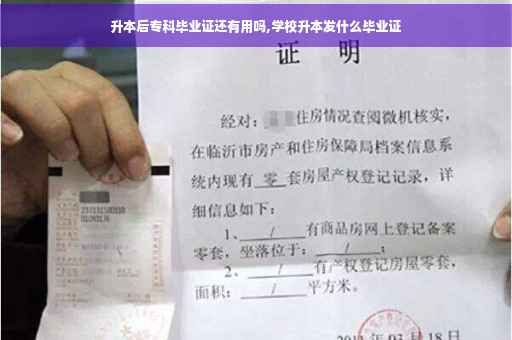 升本后专科毕业证还有用吗,学校升本发什么毕业证
证 明
经对：住房情况查阅微机核实，
在临沂市房产和住房保障局档案信息系
统内现有 零 套房屋产权登记记录，详
细信息如下：
1、 / 有商品房网上登记备案
零套，坐落位于： / ；
2、 / 有产权登记房屋零套，
面积： / 平方米。
03 月 18 日